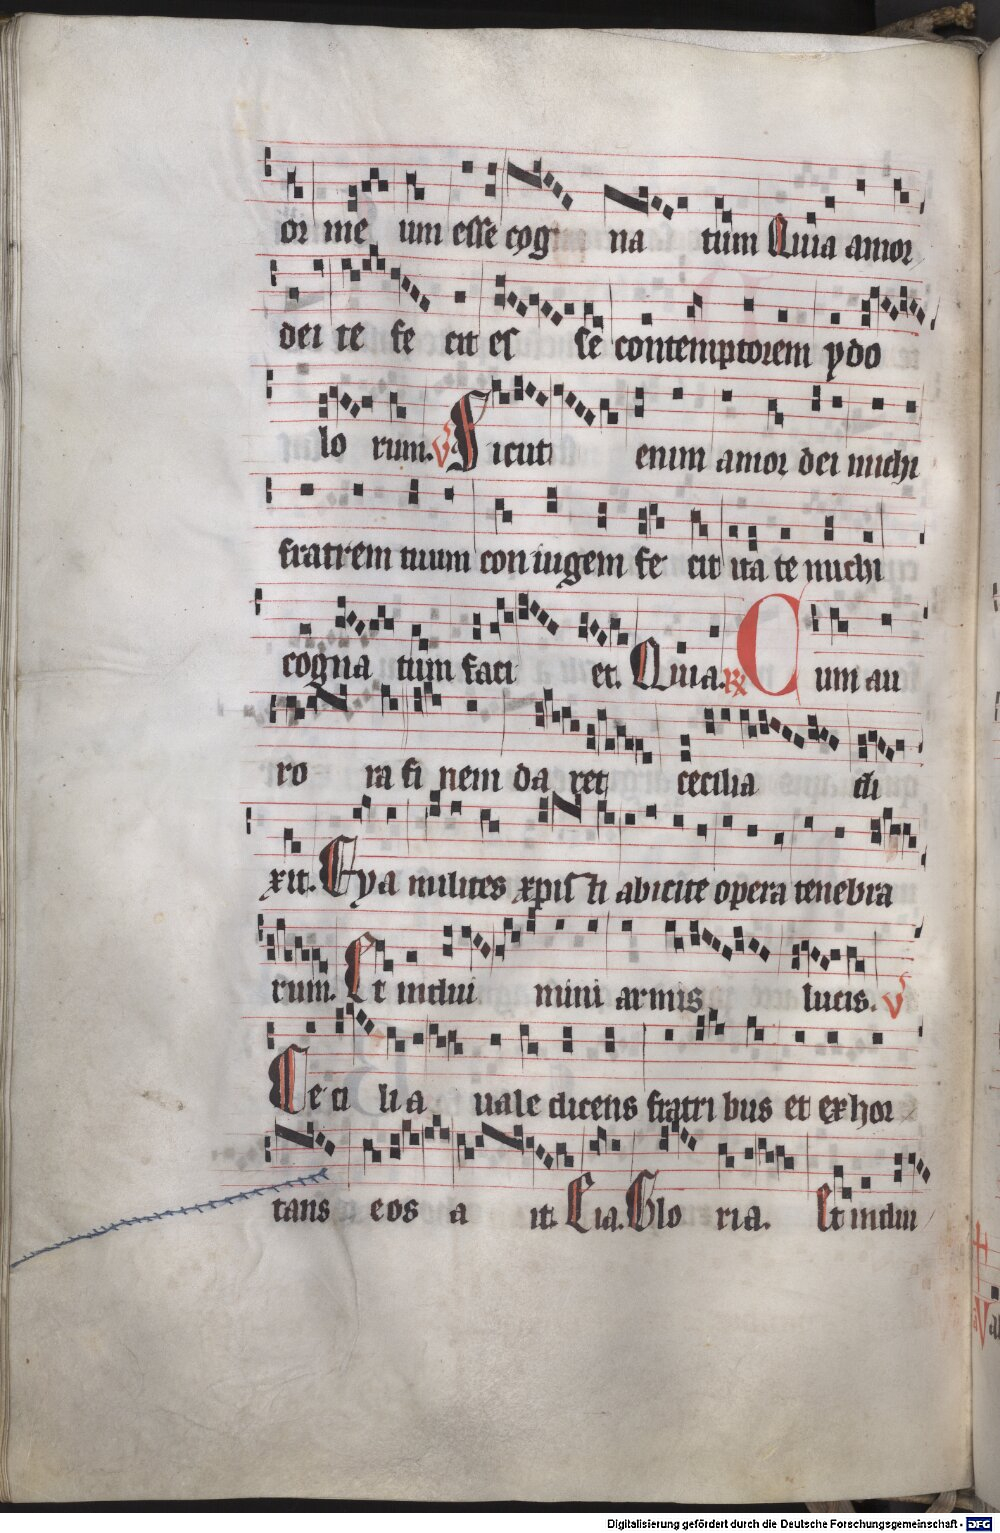 or me um esse cog na tum Quia amor
dei te fe cit es se contemptorem ydo
lo rum. V Sicut enim amor dei michi
fratrem tuum con iugem fe cit ita te michi
cogna tum faci et. Quia. R Cum au
ro ra fi nem da ret cecilia di
xit. Eya milites xpisti abicite opera tenebra
rum. Et indui mini armis lucis. V
Ceci li a uale dicens fratri bus et exhor
tans eos a it. Eia. Glo ria. Et indui
Digitalisierung gefördert durch die Deutsche Forschungsgemeinschaft - DFG